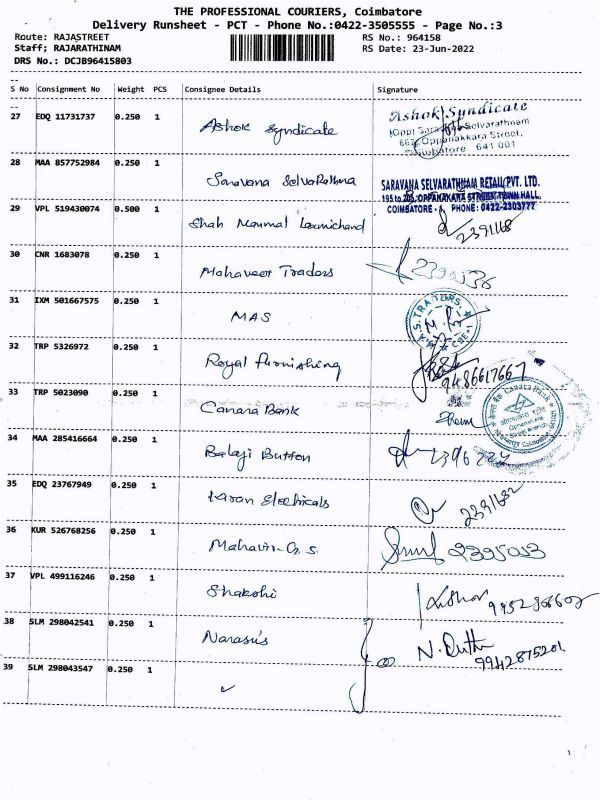 THE PROFESSIONAL COURIERS, Coimbatore
Delivery Runsheet - PCT - Phone No.:0422-3505555 - Page No.:3
Route: RAJASTREET RS No.: 964158
Staff; RAJARATHINAM RS Date: 23-Jun-2022
DRS No.: DCJB96415803
S No Consignment No Weight PCS Consignee Details Signature
27 EDQ 11731737 0.250 1 Ashok Syndicate
Ashok Syndicate
(Opp) Selvarathnam
667, Oppanakkara Street,
Coimbatore 641 001
28 MAA 857752984 0.250 1 Saravana SelvaRathna
SARAVANA SELVARATHNAM RETAIL PVT. LTD.
195 to OPPANAKARA STREET, TOWN HALL,
COIMBATORE - 1. PHONE: 0422-2303777
29 VPL 519430074 0.500 1 Shah Laxmichand 2391168
30 CNR 1683078 0.250 1 Mahaveer Traders
31 IXM 501667575 0.250 1 MAS
M.A.S. TRADERS
CBE-1
32 TRP 5326972 0.250 1 Royal furnishing 9486617667
33 TRP 5023090 0.250 1 Canara Bank
Canara Bank
34 MAA 285416664 0.250 1 Balaji Button
35 EDQ 23767949 0.250 1 Karan Electricals
36 KUR 526768256 0.250 1 Mahavir
37 VPL 499116246 0.250 1 Shakshi
38 SLM 298042541 0.250 1 Narasu's
9942875201
39 SLM 298043547 0.250 1